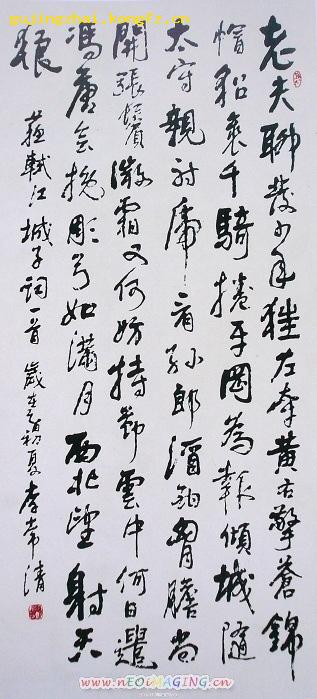 gujingzhai.kongfz.cn
老夫聊發少年狂左牽黃右擎蒼錦
帽貂裘千騎捲平岡為報傾城隨
太守親射虎看孫郎酒酣胸膽尚
開張鬢微霜又何妨持節雲中何日遣
馮唐會挽彫弓如滿月西北望射天
狼
蘇軾江城子詞一首 歲在初夏李常清
www.nEOiMAGING.cn